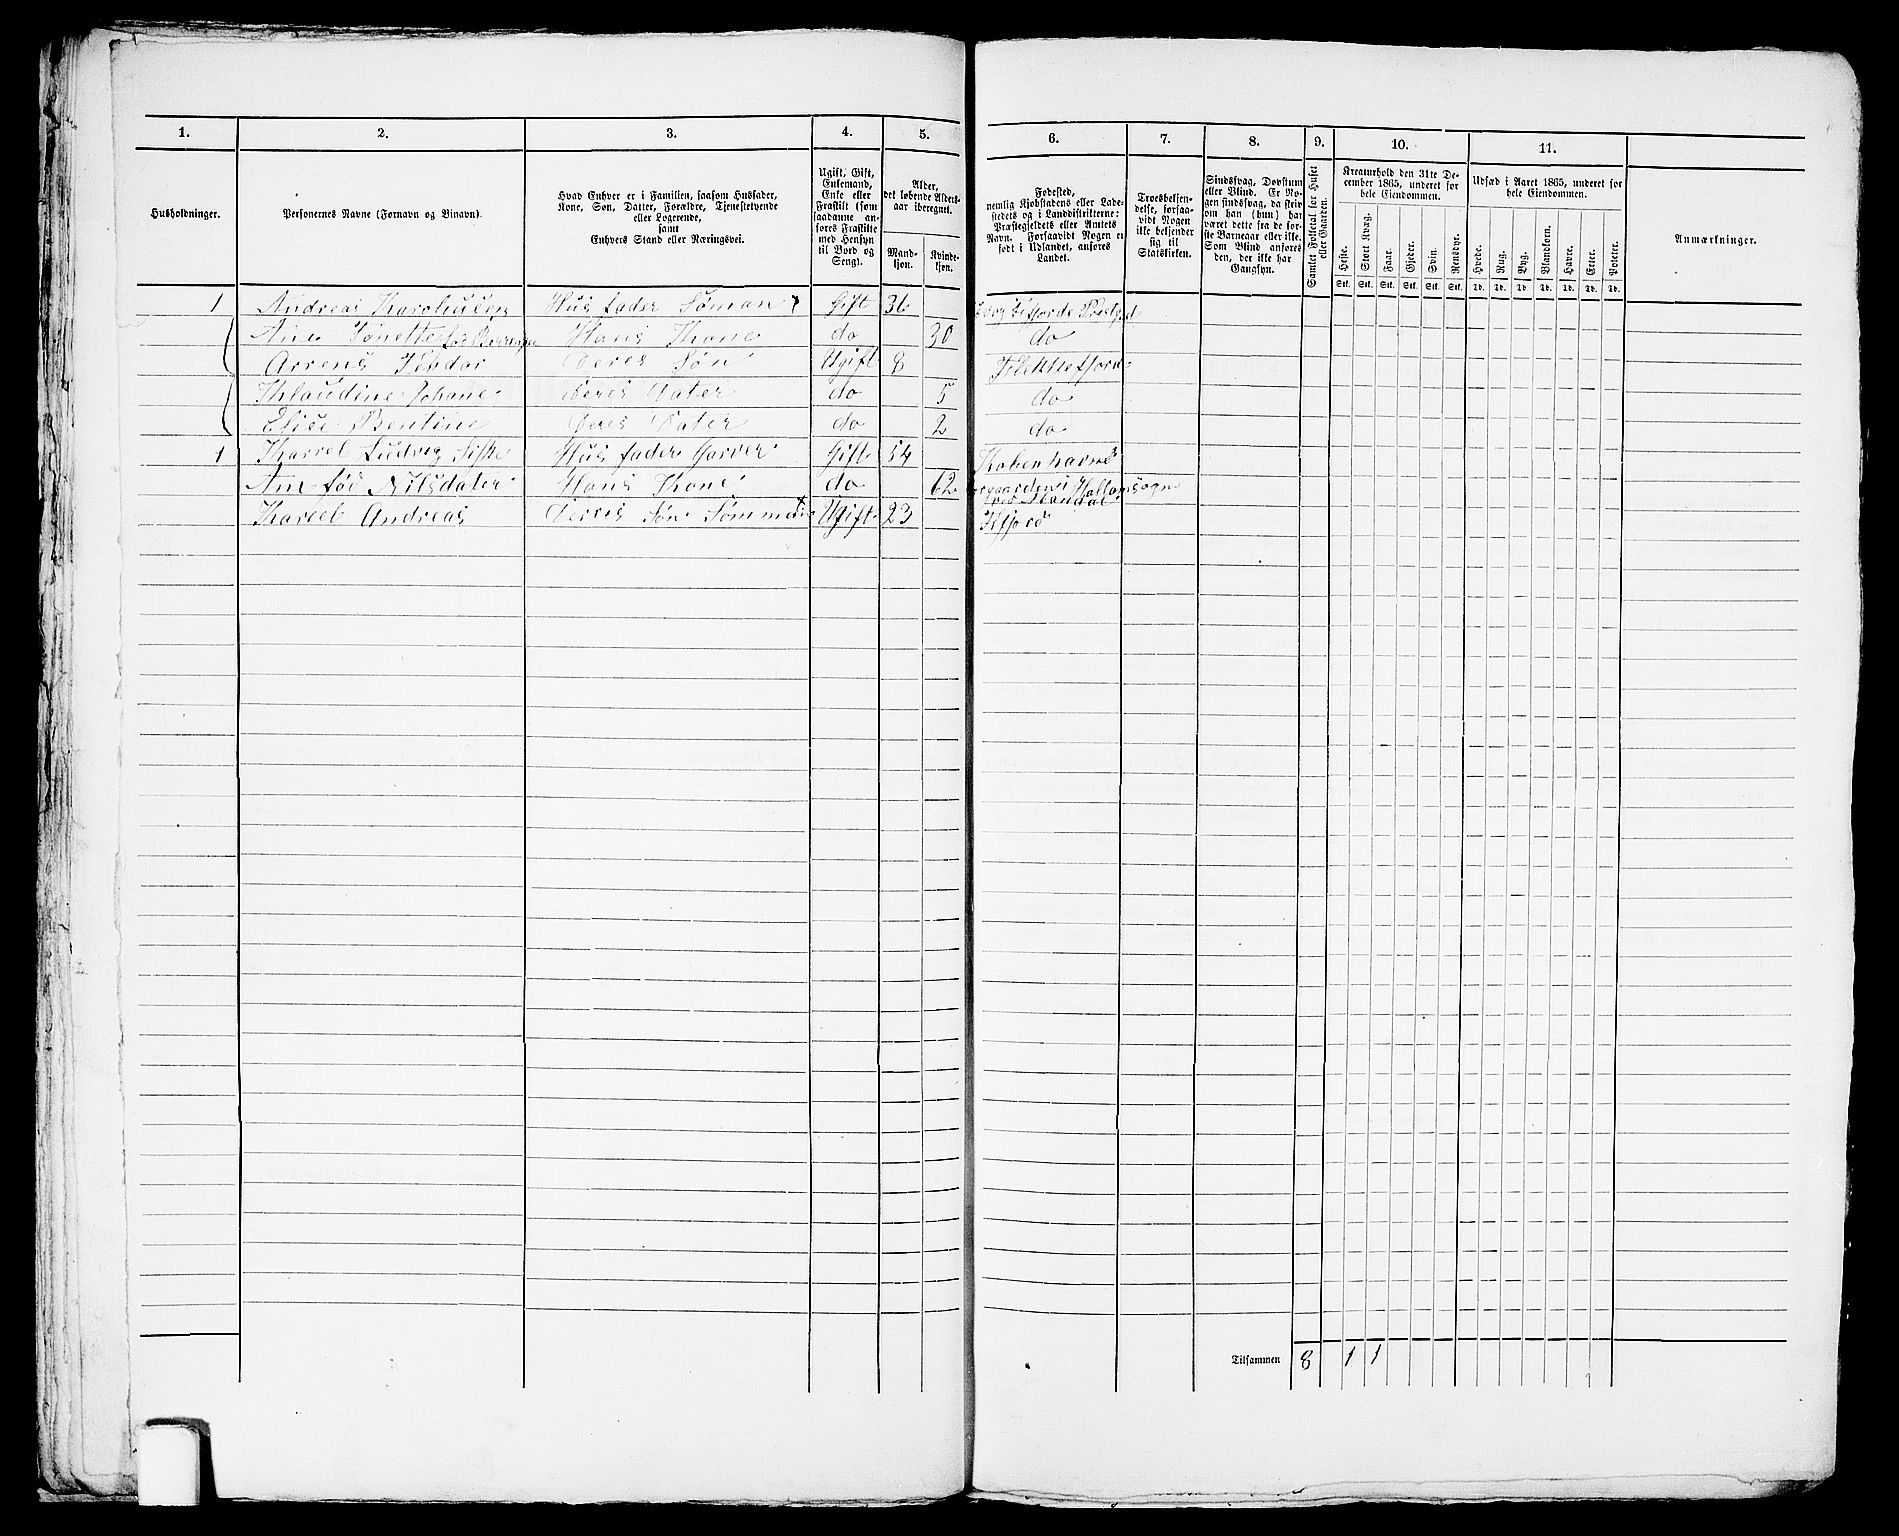 1. 2. 3. 4. 5. 6. 7. 8. 9. 10. 11.
Husholdninger.
Personernes Navne (Fornavn og Binavn).
Hvad Enhver er i Familien, saasom Husfader,
Kone, Søn, Datter, Forældre, Tjenestetyende
eller Logerende,
samt
Enhvers Stand eller Næringsvei.
Ugift, Gift,
Enkemand,
Enke eller
Fraskilt (som
saadanne an-
føres Fraskilte
med Hensyn
til Bord og
Seng).
Alder,
det løbende Alders-
aar iberegnet.
Mand-
kjøn.
Kvinde-
kjøn.
Fødested,
nemlig Kjøbstadens eller Lade-
stedets og i Landdistrikterne:
Præstegjeldets eller Amtets
Navn. Forsaavidt Nogen er
født i Udlandet, anføres
Landet.
Troesbekjen-
delse, forsaa-
vidt Nogen
ikke bekjender
sig til
Statskirken.
Sindssvag, Døvstum
eller Blind. Er No-
gen sindssvag, da skriv
om han (hun) har
været dette fra de før-
ste Barneaar eller ikke.
Som Blind anføres
den, der ikke har
Gangsyn.
Samlet Folketal for Huset
eller Gaarden.
Kreaturhold den 31te De-
cember 1865, underet for
hele Eiendommen.
Heste. Stort Kvæg. Faar. Gjeder. Svin. Rensdyr.
Stk. Stk. Stk. Stk. Stk. Stk.
Udsæd i Aaret 1865, underet for
hele Eiendommen.
Hvede. Rug. Byg. Blankorn. Havre. Erter. Poteter.
Td. Td. Td. Td. Td. Td. Td.
Anmærkninger.
1 Andreas Hus fader Søman Gift 36
Ane Tønette Hans Kone do 30 do
Arrens Deres Søn Ugift 8 Flekkefjord
Klaudine Johane Deres Dater do 5 do
Elise Bentine Deres Dater do 2 do
1 Karrel Ludvig Hus fader Garver Gift 54 Kobenhavn
Ane fød Nilsdater Hans Kone do 62
Karrel Andreas Derres Søn Ugift 23
Tilsammen 8 1 1